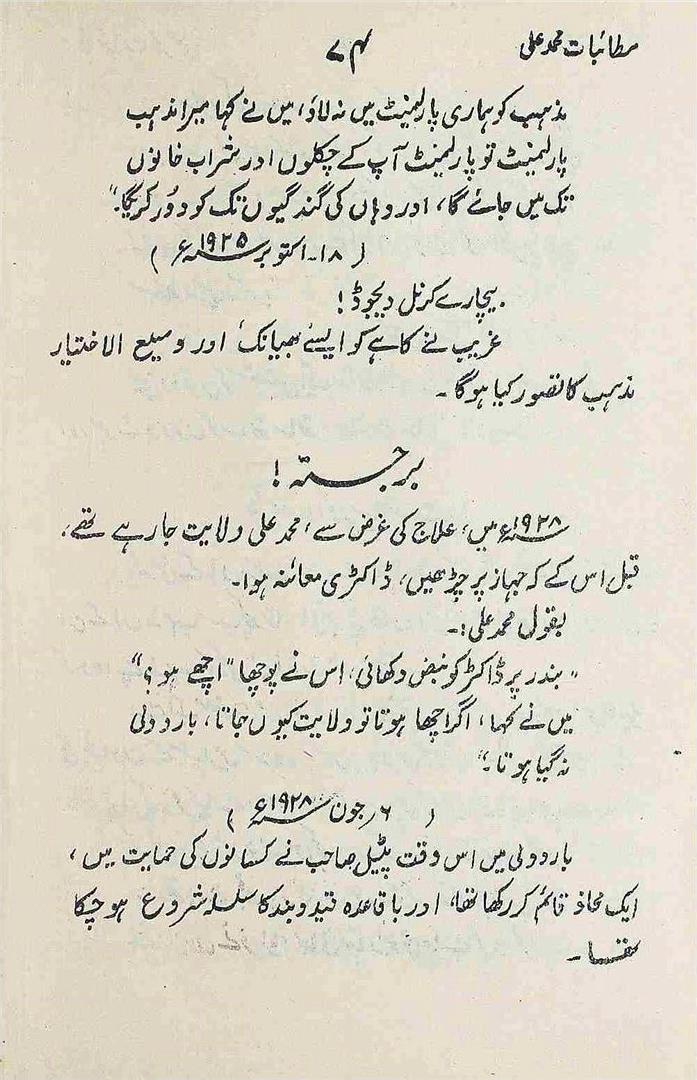 مطائبات محمد علی
۷۴
مذہب کو ہماری پارلیمنٹ میں نہ لاؤ، میں نے کہا میرا مذہب
پارلیمنٹ تو پارلیمنٹ آپ کے چکلوں اور شراب خانوں
تک میں جائے گا، اور وہاں کی گندگیوں تک کو دور کریگا۔"
(۱۸۔اکتوبر ۱۹۲۵ء)
بیچارے کرنل ویجوڈ!
غریب نے کاہے کو ایسے بھیانک اور وسیع الاختیار
مذہب کا تصور کیا ہوگا۔
برجستہ!
۱۹۲۸ء میں، علاج کی غرض سے، محمد علی ولایت جارہے تھے،
قبل اس کے کہ جہاز پر چڑھیں، ڈاکٹری معائنہ ہوا۔
بقول محمد علی:۔
"بندر پر ڈاکٹر کو نبض دکھائی، اس نے پوچھا "اچھے ہو؟"
میں نے کہا، اگر اچھا ہوتا تو ولایت کیوں جاتا، باردولی
نہ گیا ہوتا۔"
(۶؍جون ۱۹۲۸ء)
باردولی میں اس وقت پٹیل صاحب نے کسانوں کی حمایت میں،
ایک محاذ قائم کر رکھا تھا، اور باقاعدہ قید و بند کا سلسلہ شروع ہو چکا
تھا۔